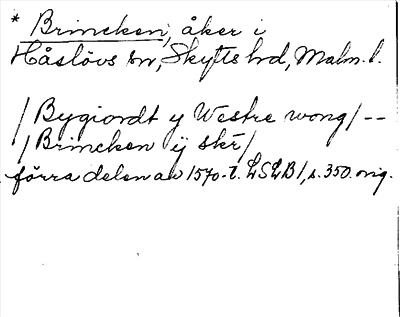 * Brincken, åker i
Håslövs sn, Skytts hd, Malm. l.
/Bygiordt y Westre wong/ --
/Brincken ij skr̄/
förra delen av 1570-t. LSLB1, s. 350. orig.